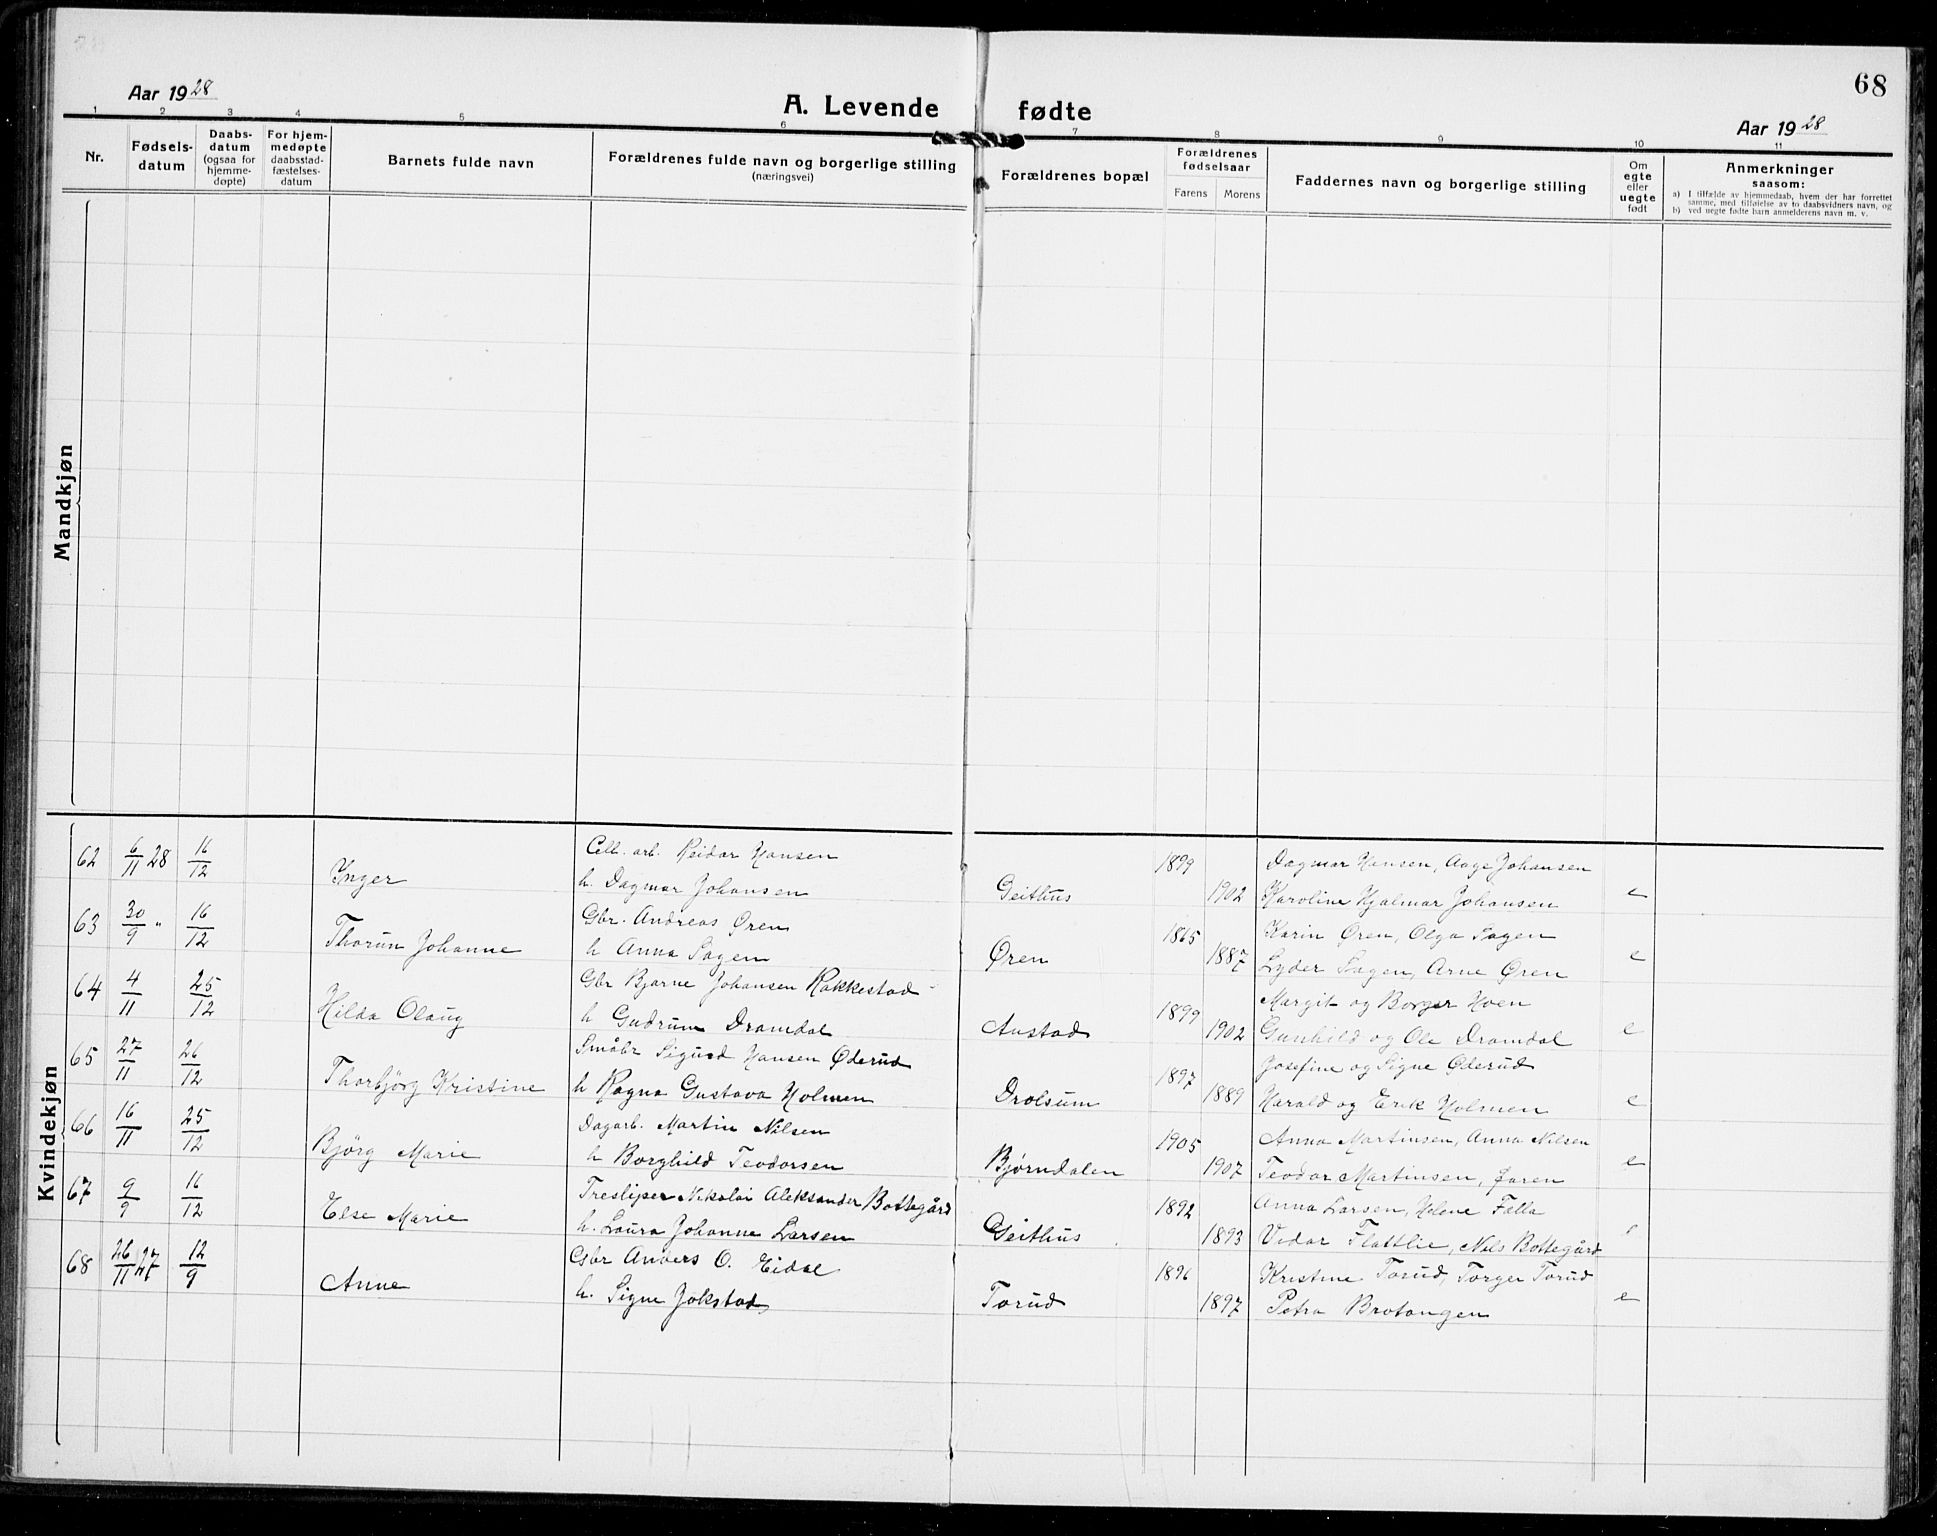 68
Aar 1928
A. Levende fødte
Aar 1928
1 2 3 4 5 6 7 8 9 10 11
Nr.
Fødsels-
datum
Daabs-
datum
(ogsaa for
hjemme-
døpte)
For hjem-
medøpte
daabsstad-
fæstelses-
datum
Barnets fulde navn
Forældrenes fulde navn og borgerlige stilling
(næringsvei)
Forældrenes bopæl
Forældrenes
fødselsaar
Farens Morens
Faddernes navn og borgerlige stilling
Om
egte
eller
uegte
født
Anmerkninger
saasom:
a) I tilfælde av hjemmedaab, hvem der har forrettet
samme, med tilføielse av to daabsvidners navn, og
b) ved uegte fødte barn anmelderens navn m. v.
Mandkjøn
Kvindekjøn
62 6/11 28 16/12 Cell. arb. Reidar Hansen 1899 Dagmar Hansen, Aage Johansen
Inger h. Dagmar Johansen Geithus 1902 Karoline Hjalmar Johansen e
63 30/9 " 16/12 Gbr. Andreas Øren 1865 Karin Øren, Olga Sagen
Thorun Johanne h Anna Sagen Øren 1887 Lyder Sagen, Arne Øren e
64 4/11 25/12 Gbr Bjarne Johansen Rakkestad 1899 Margit og Borger Hoen
Hilda Olaug h Gudrun Dramdal Austad 1902 Gunhild og Ole Dramdal e
65 27/11 26/12 Småbr Sigurd Hansen Øderud 1897 Josefine og Signe Øderud
Thorbjörg Kristine h Ragna Gustava Holmen Drolsum 1889 Harald og Erik Holmen e
66 16/11 25/12 Dagarb. Martin Nilsen 1905 Anna Martinsen, Anna Nilsen
Bjørg Marie h Borghild Teodorsen Bjørndalen 1907 Teodor Martinsen, Jøren e
67 9/9 16/12 Tresliper Nikolai Aleksander Bottegård 1892 Anna Larsen, Helene Falla
Else Marie h. Laura Johanne Larsen Geithus 1893 Vidar Flattlie, Nils Bottegård
68 26/11 27 12/9 Gbr Anders O. Eidal 1896 Kristine Torud, Torger Torud
Anne h. Signe Jokstad Torud 1897 Petra Brotangen e